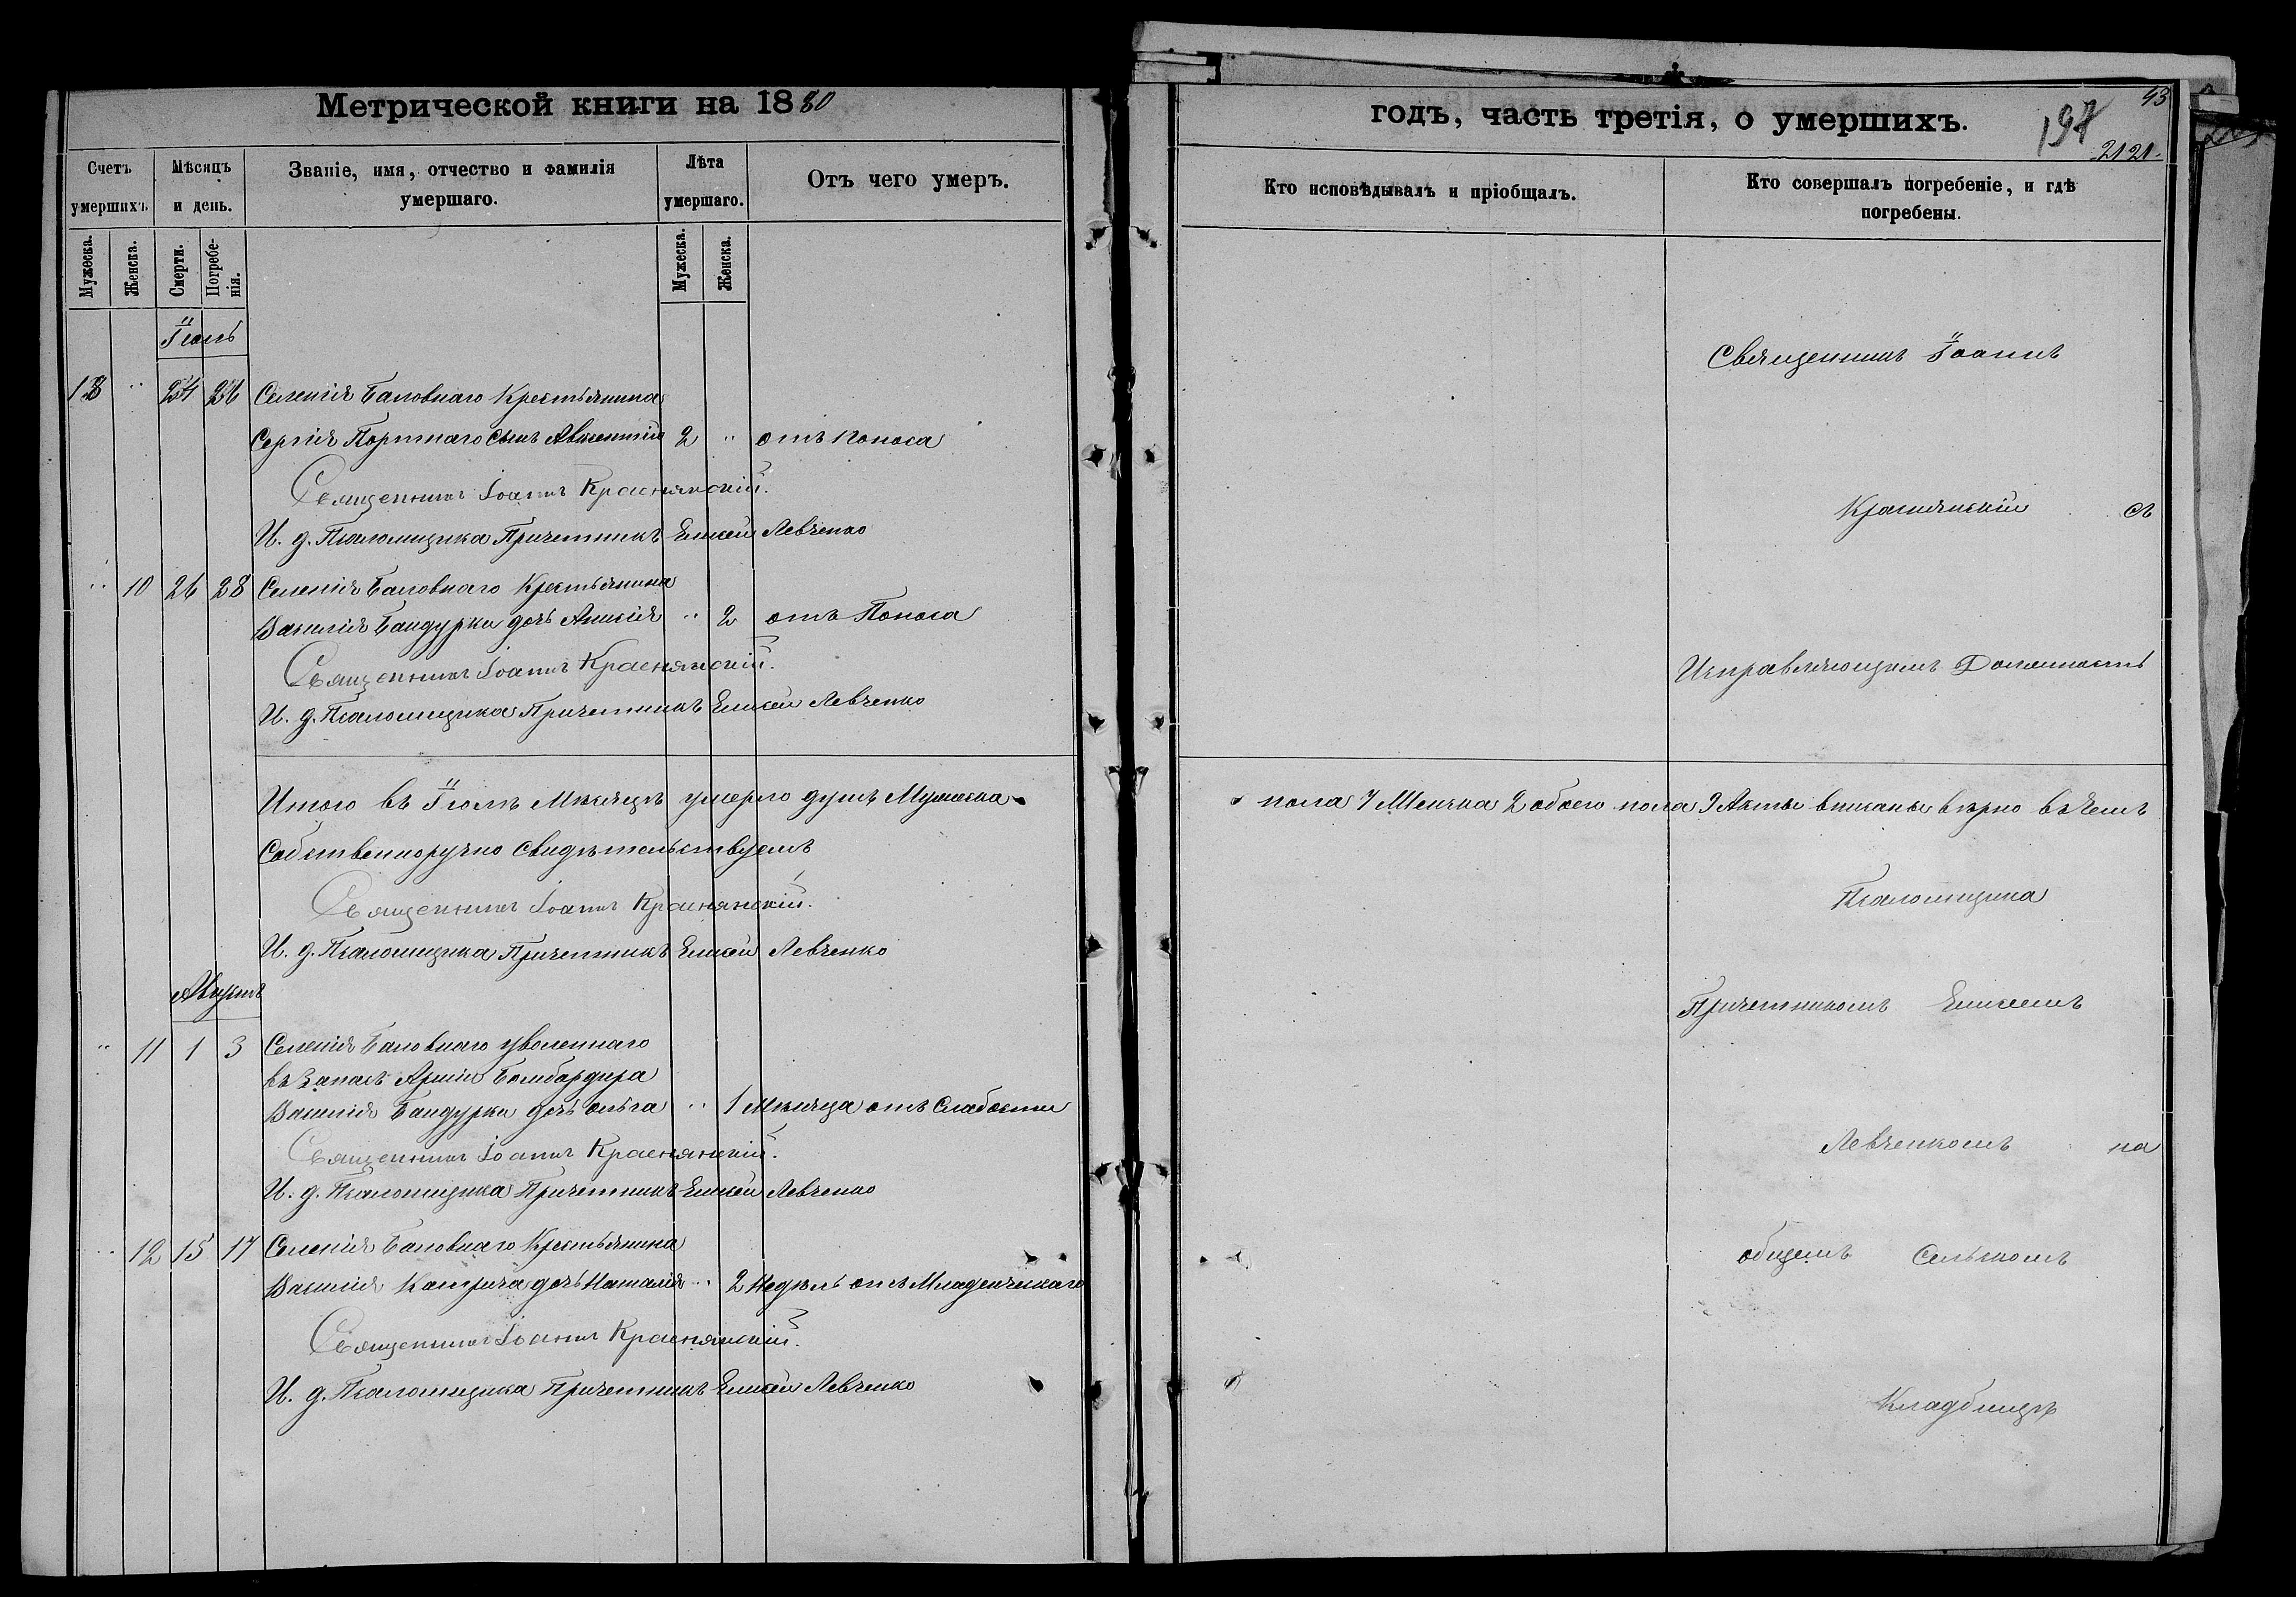 Метрической книги на 1880
годъ, часть третія, о умершихъ.
197
43
2121.
Счетъ умершихъ.
Мѣсяцъ и день.
Званіе, имя, отчество и фамилія умершаго.
Лѣта умершаго.
Отъ чего умеръ.
Кто исповѣдывалъ и пріобщалъ.
Кто совершалъ погребеніе, и гдѣ погребены.
Мужеска.
Женска.
Смерти.
Погребенія.
Мужеска.
Женска.
Іюль
13 " 24 26 Селенія Баловнаго Крестьянина
Сергія Портнаго сынъ Авксентій 2 " отъ поноса
Священникъ Іоаннъ Краснянскій.
И. д. Псаломщика Причетникъ Елисей Левченко
" 10 26 28 Селенія Баловнаго Крестьянина
Василія Бандурки дочь Анисія " 2 отъ Поноса
Священникъ Іоаннъ Краснянскій.
И. д. Псаломщика Причетникъ Елисей Левченко
Итого въ Іюлѣ Мѣсяцѣ умерло душъ Мужеска
пола 7 Женска 2 обоего пола 9 Акты вписаны вѣрно въ чемъ
Собственноручно свидѣтельствуемъ
Священникъ Іоаннъ Краснянскій.
И. д. Псаломщика Причетникъ Елисей Левченко
Августъ
" 11 1 3 Селенія Баловнаго уволеннаго
въ Запасъ Арміи Бомбардира
Василія Бандурки дочь Ольга " 1 Мѣсяца отъ Слабости
Священникъ Іоаннъ Краснянскій.
И. д. Псаломщика Причетникъ Елисей Левченко
" 12 15 17 Селенія Баловнаго Крестьянина
Василія Катрича дочь Наталія " 2 Недѣль отъ Младенческаго
Священникъ Іоаннъ Краснянскій.
И. д. Псаломщика Причетникъ Елисей Левченко
Священникъ Іоаннъ
Краснянскій съ
Исправляющимъ Должность
Псаломщика
Причетникомъ Елисеемъ
Левченкомъ на
общемъ Сельскомъ
Кладбищѣ